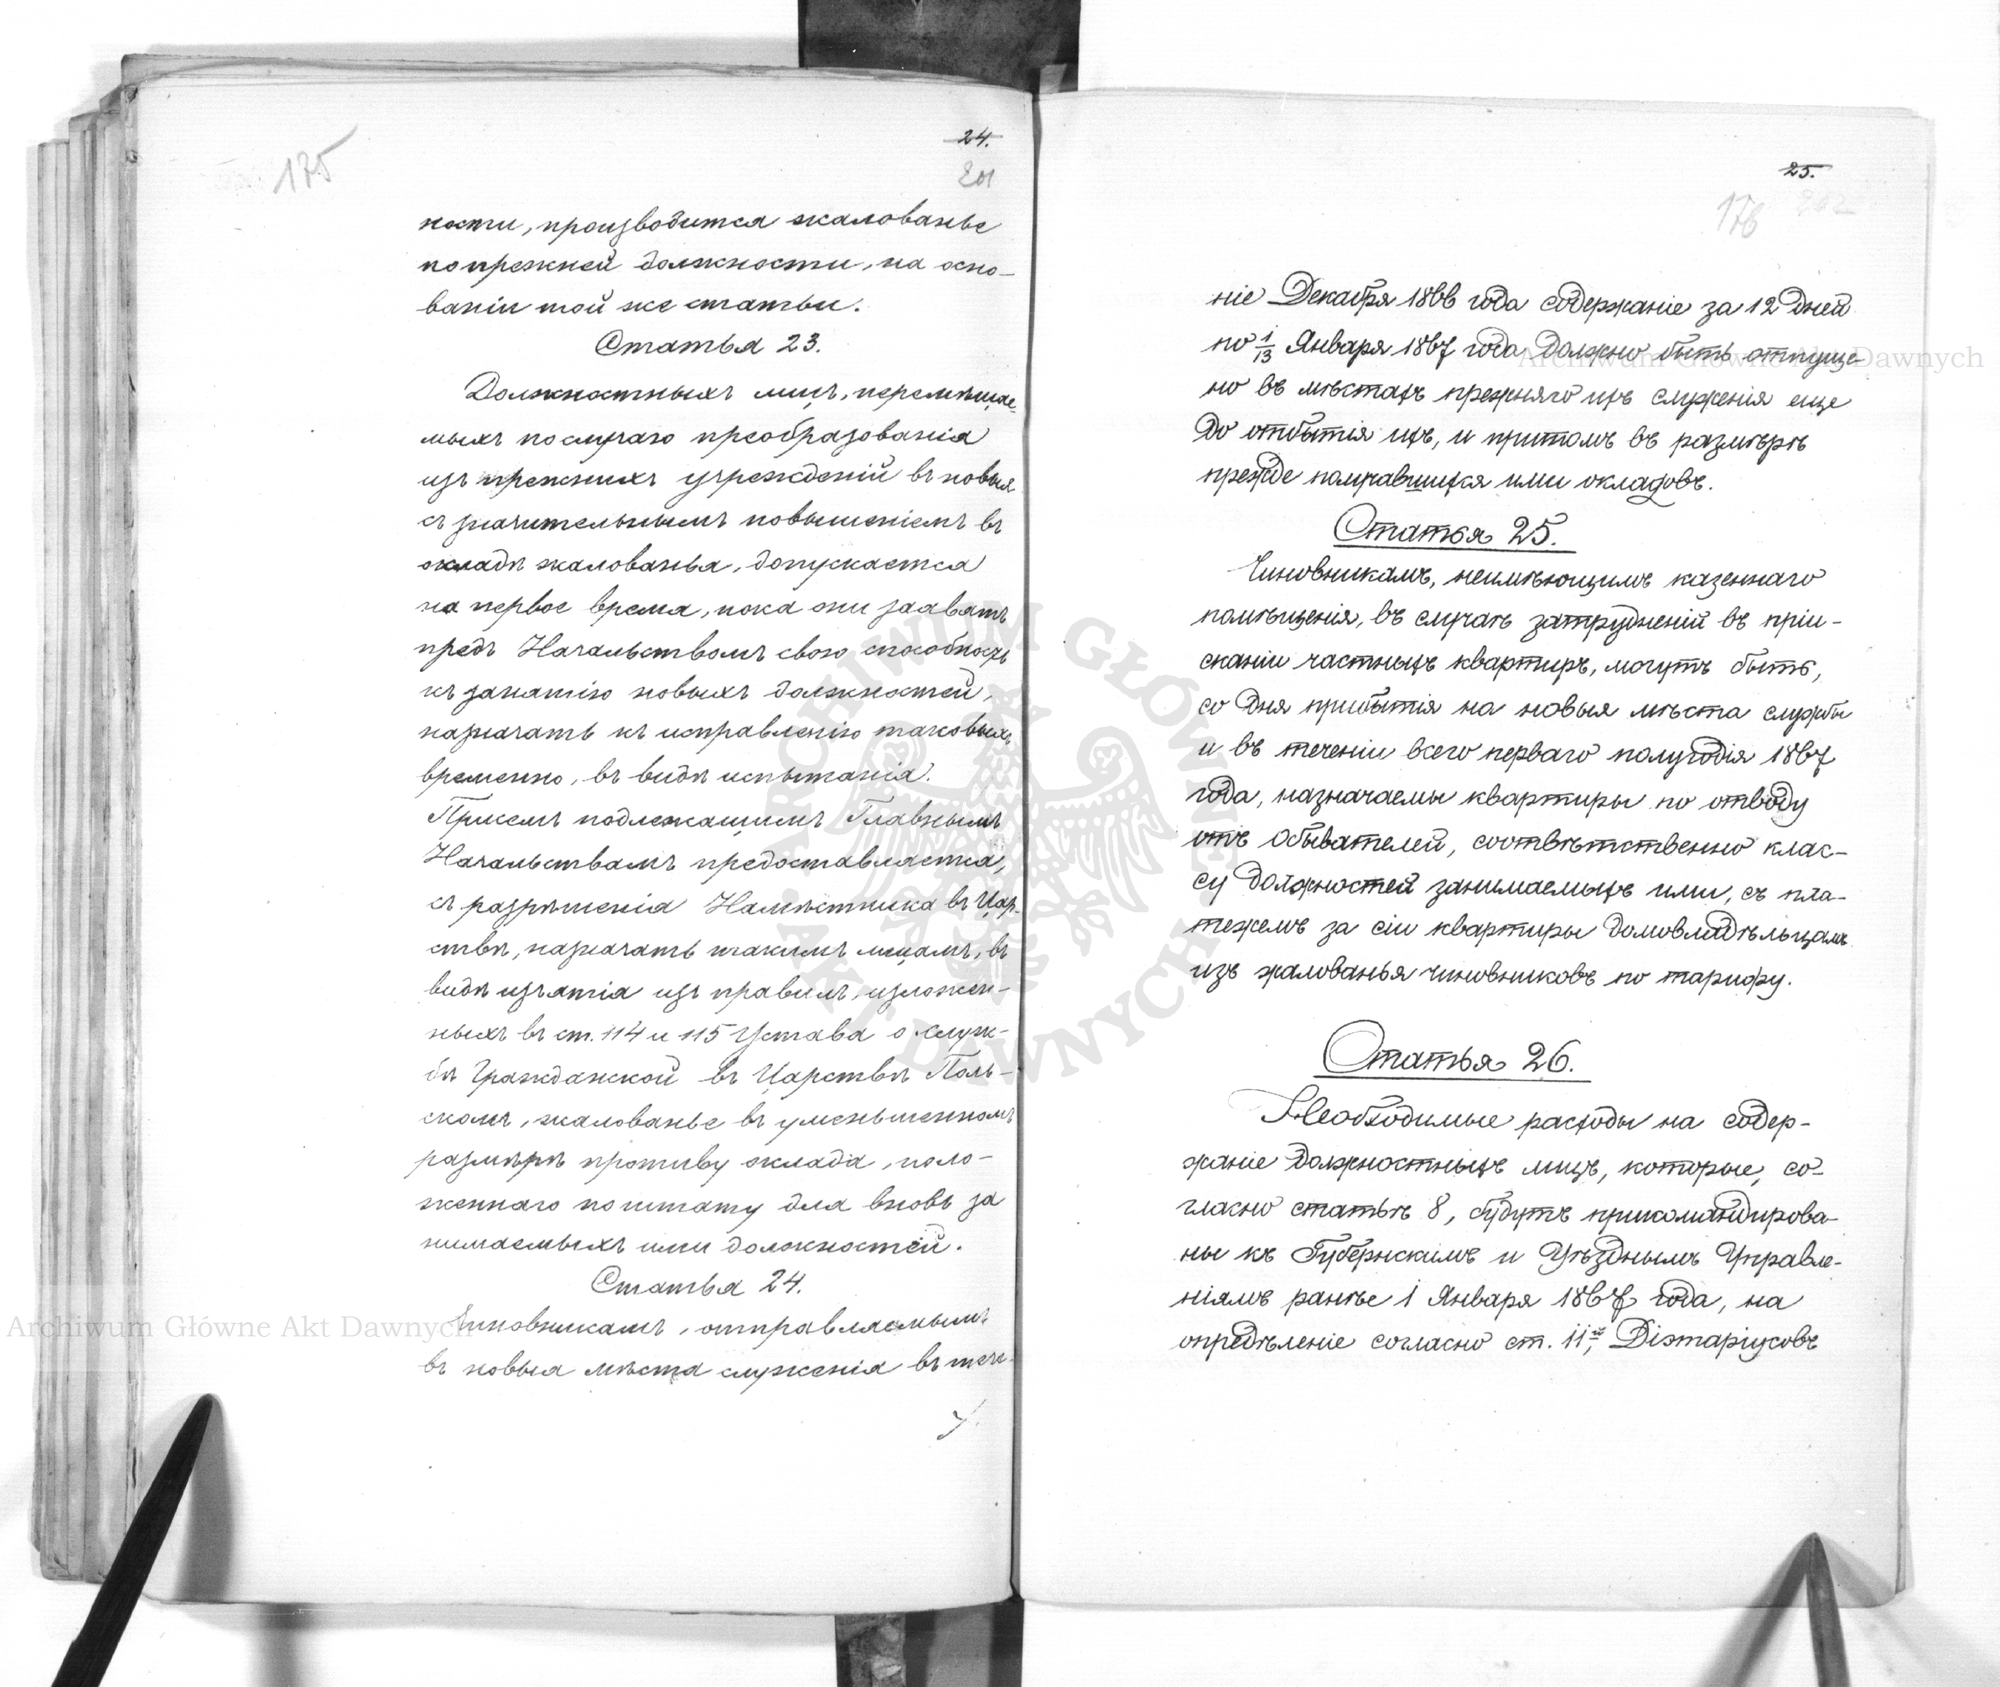 24.
175
201
ности, производится жалованье
по прежней должности, на осно-
ваніи той же статьи.
Статья 23.
Должностныхъ лицъ, перемѣщае-
мыхъ по случаю преобразованія
изъ прежнихъ учрежденій въ новыя
съ значительнымъ повышеніемъ въ
окладѣ жалованья, допускается
на первое время, пока они заявятъ
предъ Начальствомъ свою способность
къ занятію новыхъ должностей,
назначать къ исправленію таковыхъ
временно, въ видѣ испытанія.
Причемъ подлежащимъ Главнымъ
Начальствамъ предоставляется,
съ разрѣшенія Намѣстника въ Цар-
ствѣ, назначать такимъ лицамъ, въ
видѣ изъятія изъ правилъ, изложен-
ныхъ въ ст. 114 и 115 Устава о служ-
бѣ Гражданской въ Царствѣ Поль-
скомъ, жалованье въ уменьшенномъ
размѣрѣ противу оклада, поло-
женнаго по штату для вновь за
нимаемыхъ ими должностей.
Статья 24.
Чиновникамъ, отправляемымъ
въ новыя мѣста служенія въ тече-
25.
176
202
ніе Декабря 1866 года содержаніе за 12 дней
по 1/13 Января 1867 года должно быть отпуще-
но въ мѣстахъ прежняго ихъ служенія еще
до отбытія ихъ, и притомъ въ размѣрѣ
прежде получавшихся ими окладовъ.
Статья 25.
Чиновникамъ, неимѣющимъ казеннаго
помѣщенія, въ случаѣ затрудненій въ пріи-
сканіи частныхъ квартиръ, могутъ быть,
со дня прибытія на новыя мѣста службы
и въ теченіи всего перваго полугодія 1867
года, назначаемы квартиры по отводу
отъ обывателей, соотвѣтственно клас-
су должностей занимаемыхъ ими, съ пла-
тежемъ за сіи квартиры домовладѣльцамъ
изъ жалованья чиновниковъ по тарифу.
Статья 26.
Необходимые расходы на содер-
жаніе должностныхъ лицъ, которые, со-
гласно статьѣ 8, будутъ прикомандирова-
ны къ Губернскимъ и Уѣзднымъ Управле-
ніямъ ранѣе 1 Января 1867 года, на
опредѣленіе согласно ст. 11й, Діэтаріусовъ
Archiwum Główne Akt Dawnych
Archiwum Główne Akt Dawnych
ARCHIWUM GŁÓWNE AKT DAWNYCH